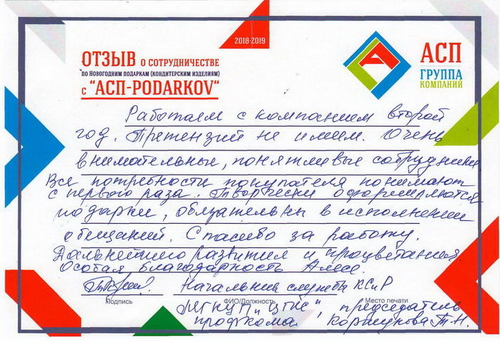 2018-2019
ОТЗЫВ О СОТРУДНИЧЕСТВЕ
ПО НОВОГОДНИМ ПОДАРКАМ (КОНДИТЕРСКИМ ИЗДЕЛИЯМ)
С "АСП-PODARKOV"
АСП
ГРУППА
КОМПАНИЙ
Работаем с компанией второй
год. Претензий не имеем. Очень
внимательные, понятливые сотрудники
Все потребности покупателя понимают
с первого раза. Творчески оформляются
подарки, обязательны в исполнении
обещаний. Спасибо за работу.
Дальнейшего развития и процветания
Особая благодарность Алесе.
Начальник службы КСиР
Подпись
ФИО/Должность
Место печати
МГКЦП "ЦГИС" председатель
профкома Коршунова Т.Н.